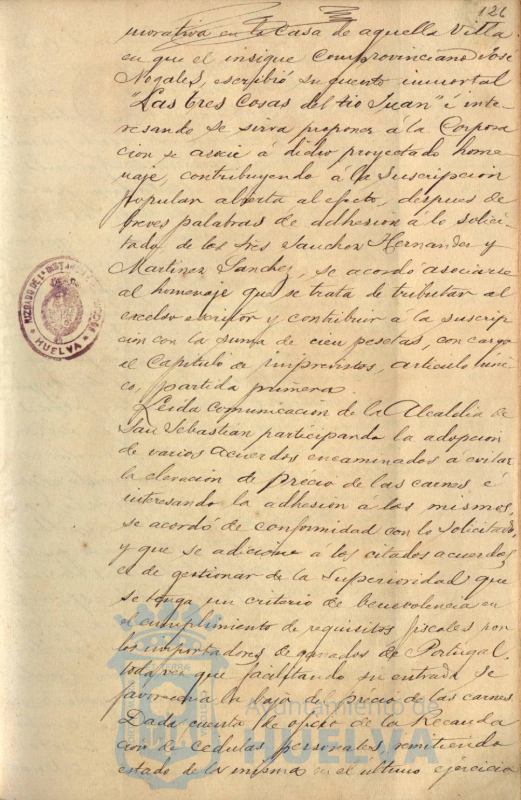 126
morativa en la Casa de aquella Villa
en que el insigne comprovinciano José
Nogales, escribió su cuento inmortal
"Las tres cosas del tio Juan" é inte-
resando se sirva proponer á la Corpora
cion se asocie á dicho proyectado home
naje, contribuyendo á la suscripcion
popular abierta al efecto, despues de
breves palabras de adhesion á lo solici-
tado, de los Sres Sanchez Hernandez y
Martinez Sanchez, se acordó asociarse
al homenaje que se trata de tributar al
excelso escritor y contribuir á la suscrip
cion con la suma de cien pesetas, con cargo
al Capitulo de imprevistos, articulo úni-
co, partida primera.
Leida comunicacion de la Alcaldia de
San Sebastian participando la adopcion
de varios acuerdos encaminados á evitar
la elevacion de precio de las carnes é
interesando la adhesion á los mismos,
se acordó de conformidad con lo solicitado,
y que se adicione á los citados acuerdos,
el de gestionar de la Superioridad que
se tenga un criterio de benevolencia en
el cumplimiento de requisitos fiscales por
los importadores de ganados de Portugal,
toda vez que facilitando su entrada se
favoreceria la baja del precio de las carnes.
Dada cuenta de oficio de la Recauda
cion de Cedulas personales, remitiendo
estado de la misma en el último ejercicio
HUELVA
Ayuntamiento de
HUELVA